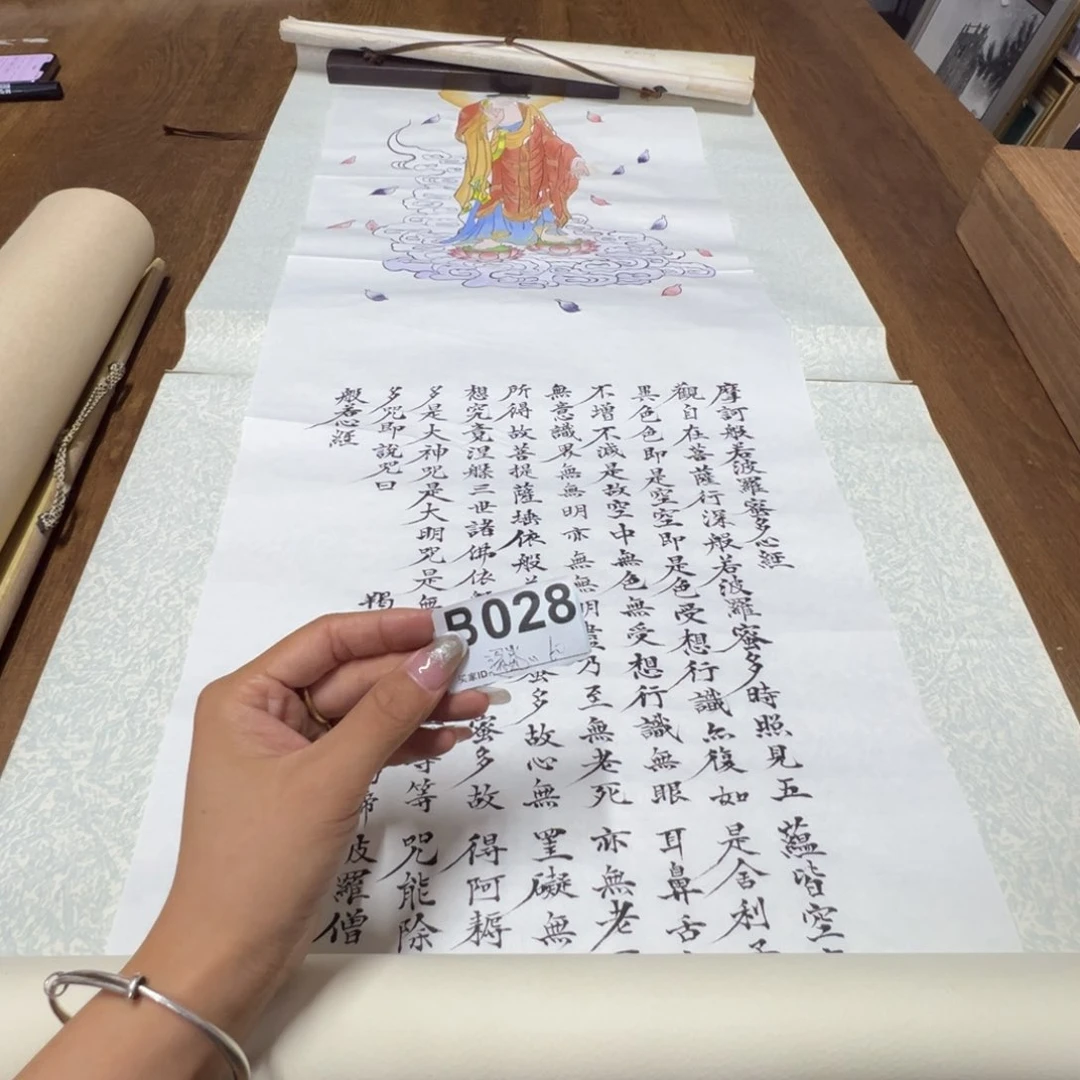 摩訶般若波羅蜜多心経
觀自在菩薩行深般若波羅蜜多時照見五蘊皆空
異色色即是空空即是色受想行識亦復如是舍利子
不增不減是故空中無色無受想行識無眼耳鼻舌
無意識界無無明亦無無明盡乃至無老死亦無老
所得故菩提薩埵依般若蜜多故心無罣礙無
想究竟涅槃三世諸佛依般蜜多故得阿耨
多是大神咒是大明咒是無等等咒能除
多咒即說咒曰 揭諦波羅僧
般若心経
B028
买家ID